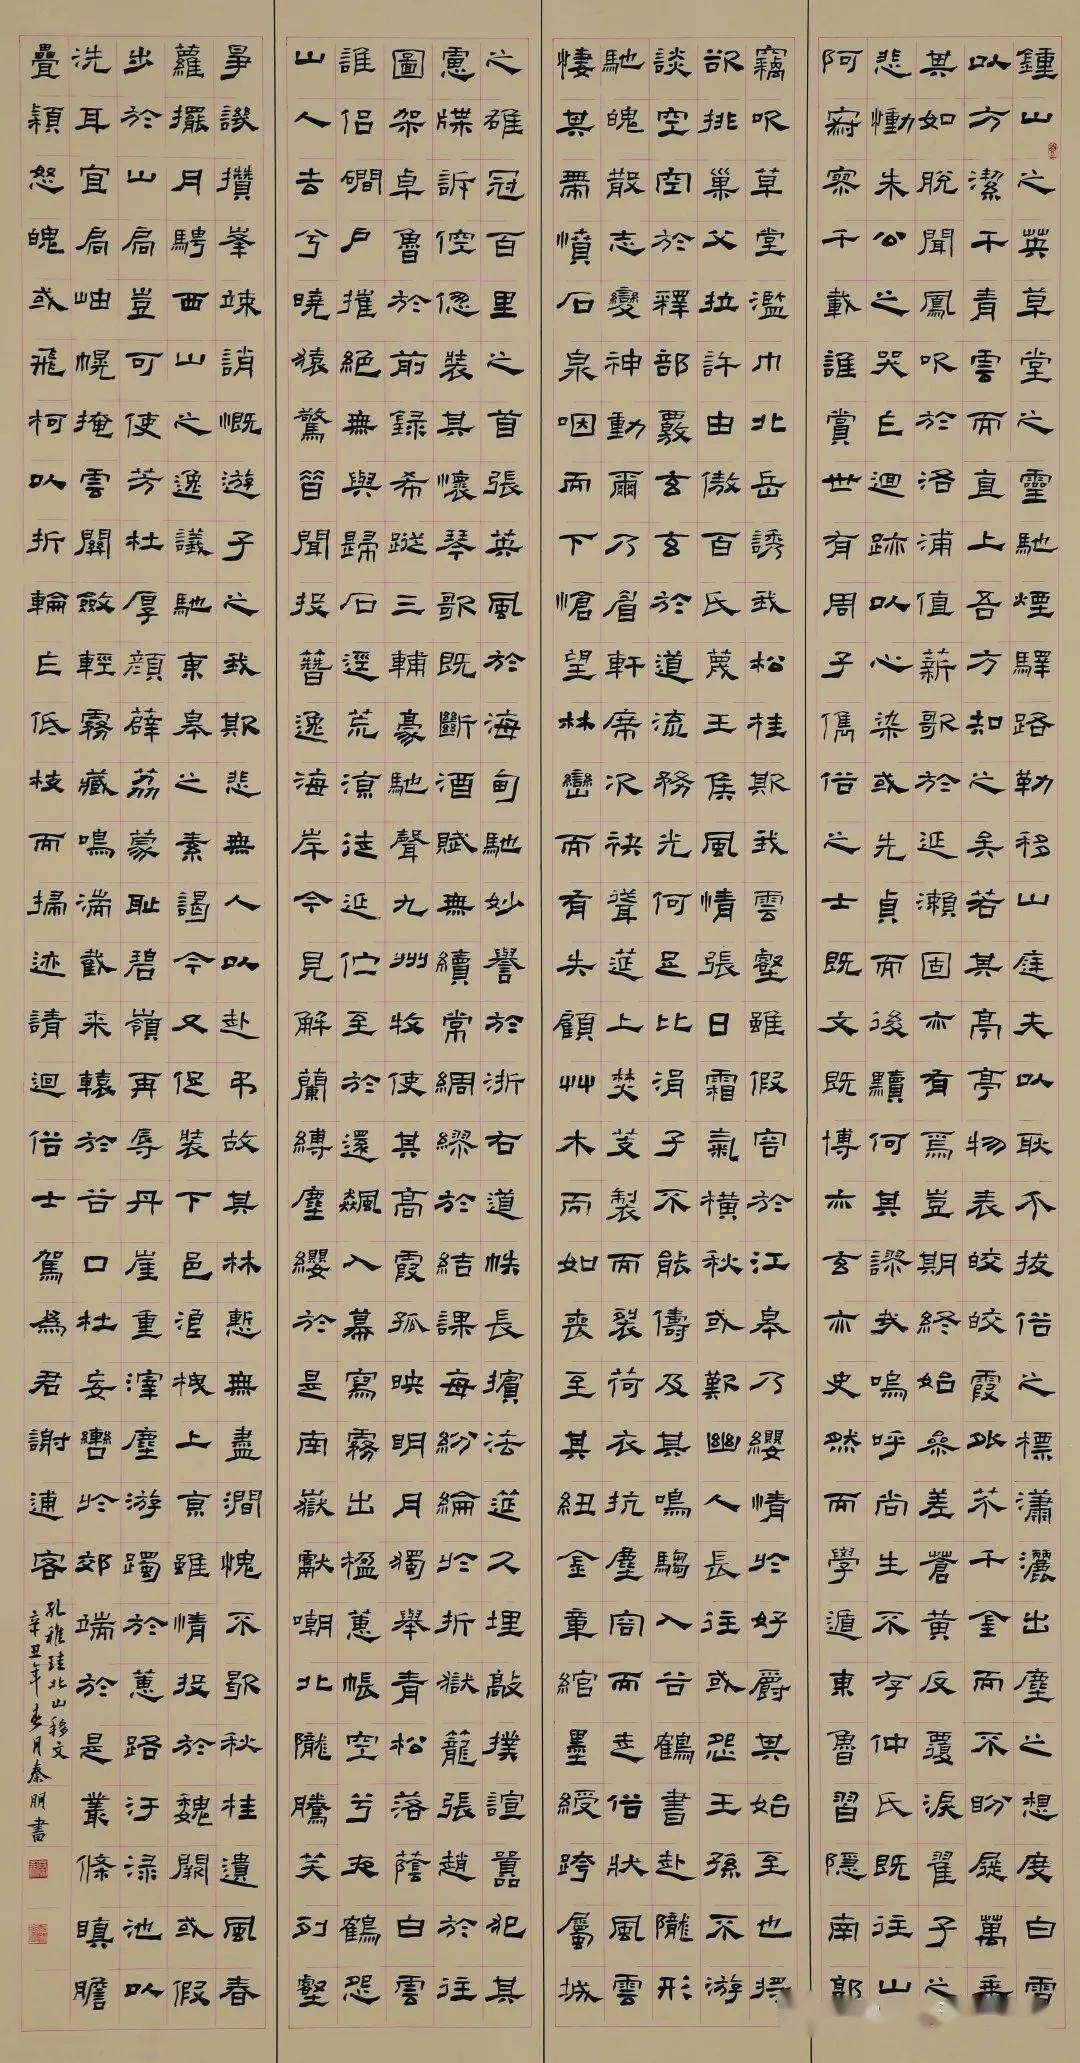 鍾山之英草堂之靈馳煙驛路勒移山庭夫以耿不拔俗之標瀟灑出塵之想度白雪
以方潔干青雲而直上吾方知之矣若其亭亭物表皎皎霞外芥千金而不盼屣萬乘
其如脫聞鳳吹於洛浦值薪歌於延瀨固亦有焉豈期終始參差蒼黃反覆淚翟子之
悲慟朱公之哭乍迴跡以心染或先貞而後黷何其謬哉嗚呼尚生不存仲氏既往山
阿寂寥千載誰賞世有周子儁俗之士既文既博亦玄亦史然而學遁東魯習隱南郭
竊吹草堂濫巾北岳誘我松桂欺我雲壑雖假容於江皋乃纓情於好爵其始至也將
欲排巢父拉許由傲百氏蔑王侯風情張日霜氣橫秋或歎幽人長往或怨王孫不游
談空空於釋部覈玄玄於道流務光何足比涓子不能儔及其鳴騶入谷鶴書赴隴形
馳魄散志變神動爾乃眉軒席次袂聳筵上焚芰製而裂荷衣抗塵容而走俗狀風雲
悽其帶憤石泉咽而下愴望林巒而有失顧艸木而如喪至其紐金章綰墨綬跨屬城
之雄冠百里之首張英風於海甸馳妙譽於浙右道帙長擯法筵久埋敲撲諠囂犯其
慮牒訴倥傯裝其懷琴歌既斷酒賦無續常綢繆於結課每紛綸於折獄籠張趙於往
圖架卓魯於前錄希蹤三輔豪馳聲九州牧使其高霞孤映明月獨舉青松落蔭白雲
誰侶磵戶摧絕無與歸石逕荒涼徒延佇至於還飆入幕寫霧出楹蕙帳空兮夜鶴怨
山人去兮曉猿驚昔聞投簪逸海岸今見解蘭縛塵纓於是南嶽獻嘲北隴騰笑列壑
爭譏攢峯竦誚慨遊子之我欺悲無人以赴弔故其林慙無盡澗愧不歇秋桂遺風春
蘿擺月騁西山之逸議馳東皋之素謁今又促裝下邑浪栧上京雖情投於魏闕或假
步於山扃豈可使芳杜厚顏薜荔蒙恥碧嶺再辱丹崖重滓塵游躅於蕙路汙淥池以
洗耳宜扃岫幌掩雲關斂輕霧藏鳴湍截來轅於谷口杜妄轡於郊端於是叢條瞋膽
疊穎怒魄或飛柯以折輪乍低枝而掃迹請迴俗士駕為君謝逋客
孔稚珪北山移文
辛丑年春月秦朋書